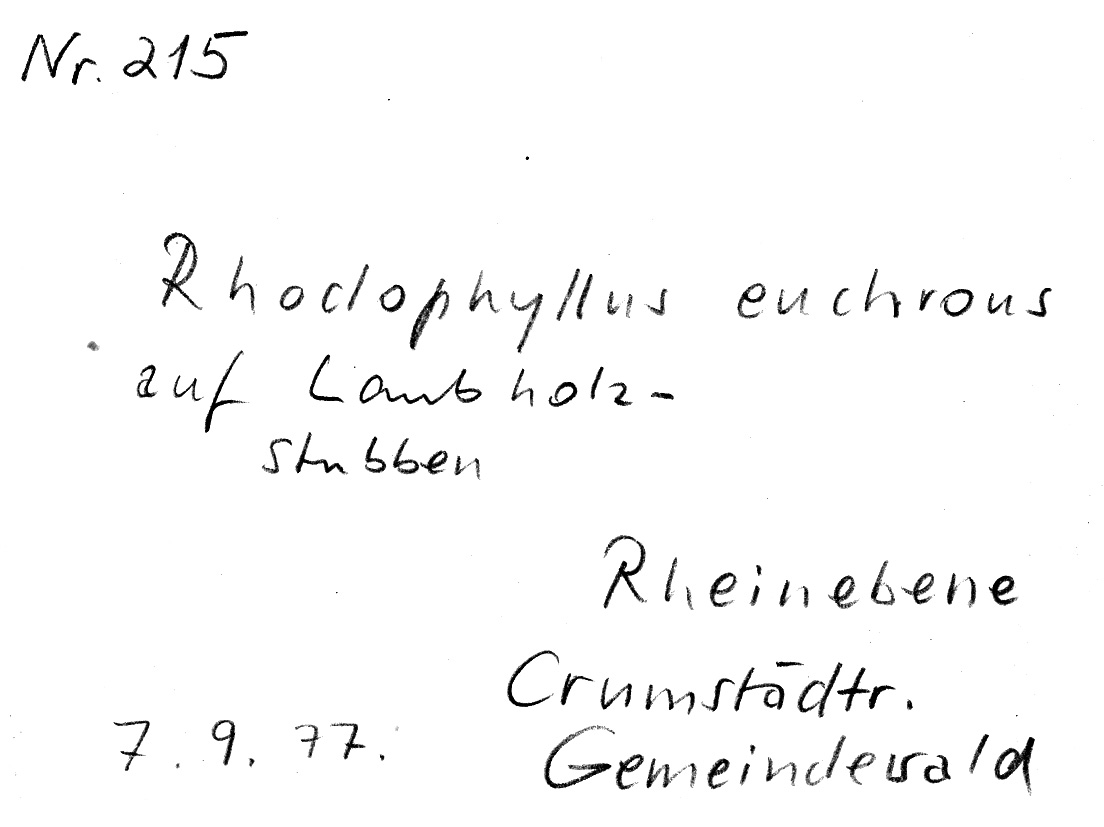 Nr. 215
Rhodophyllus euchrous
auf Laubholz-
stubben
Rheinebene
Crumstädtr.
7.9.77. Gemeindewald